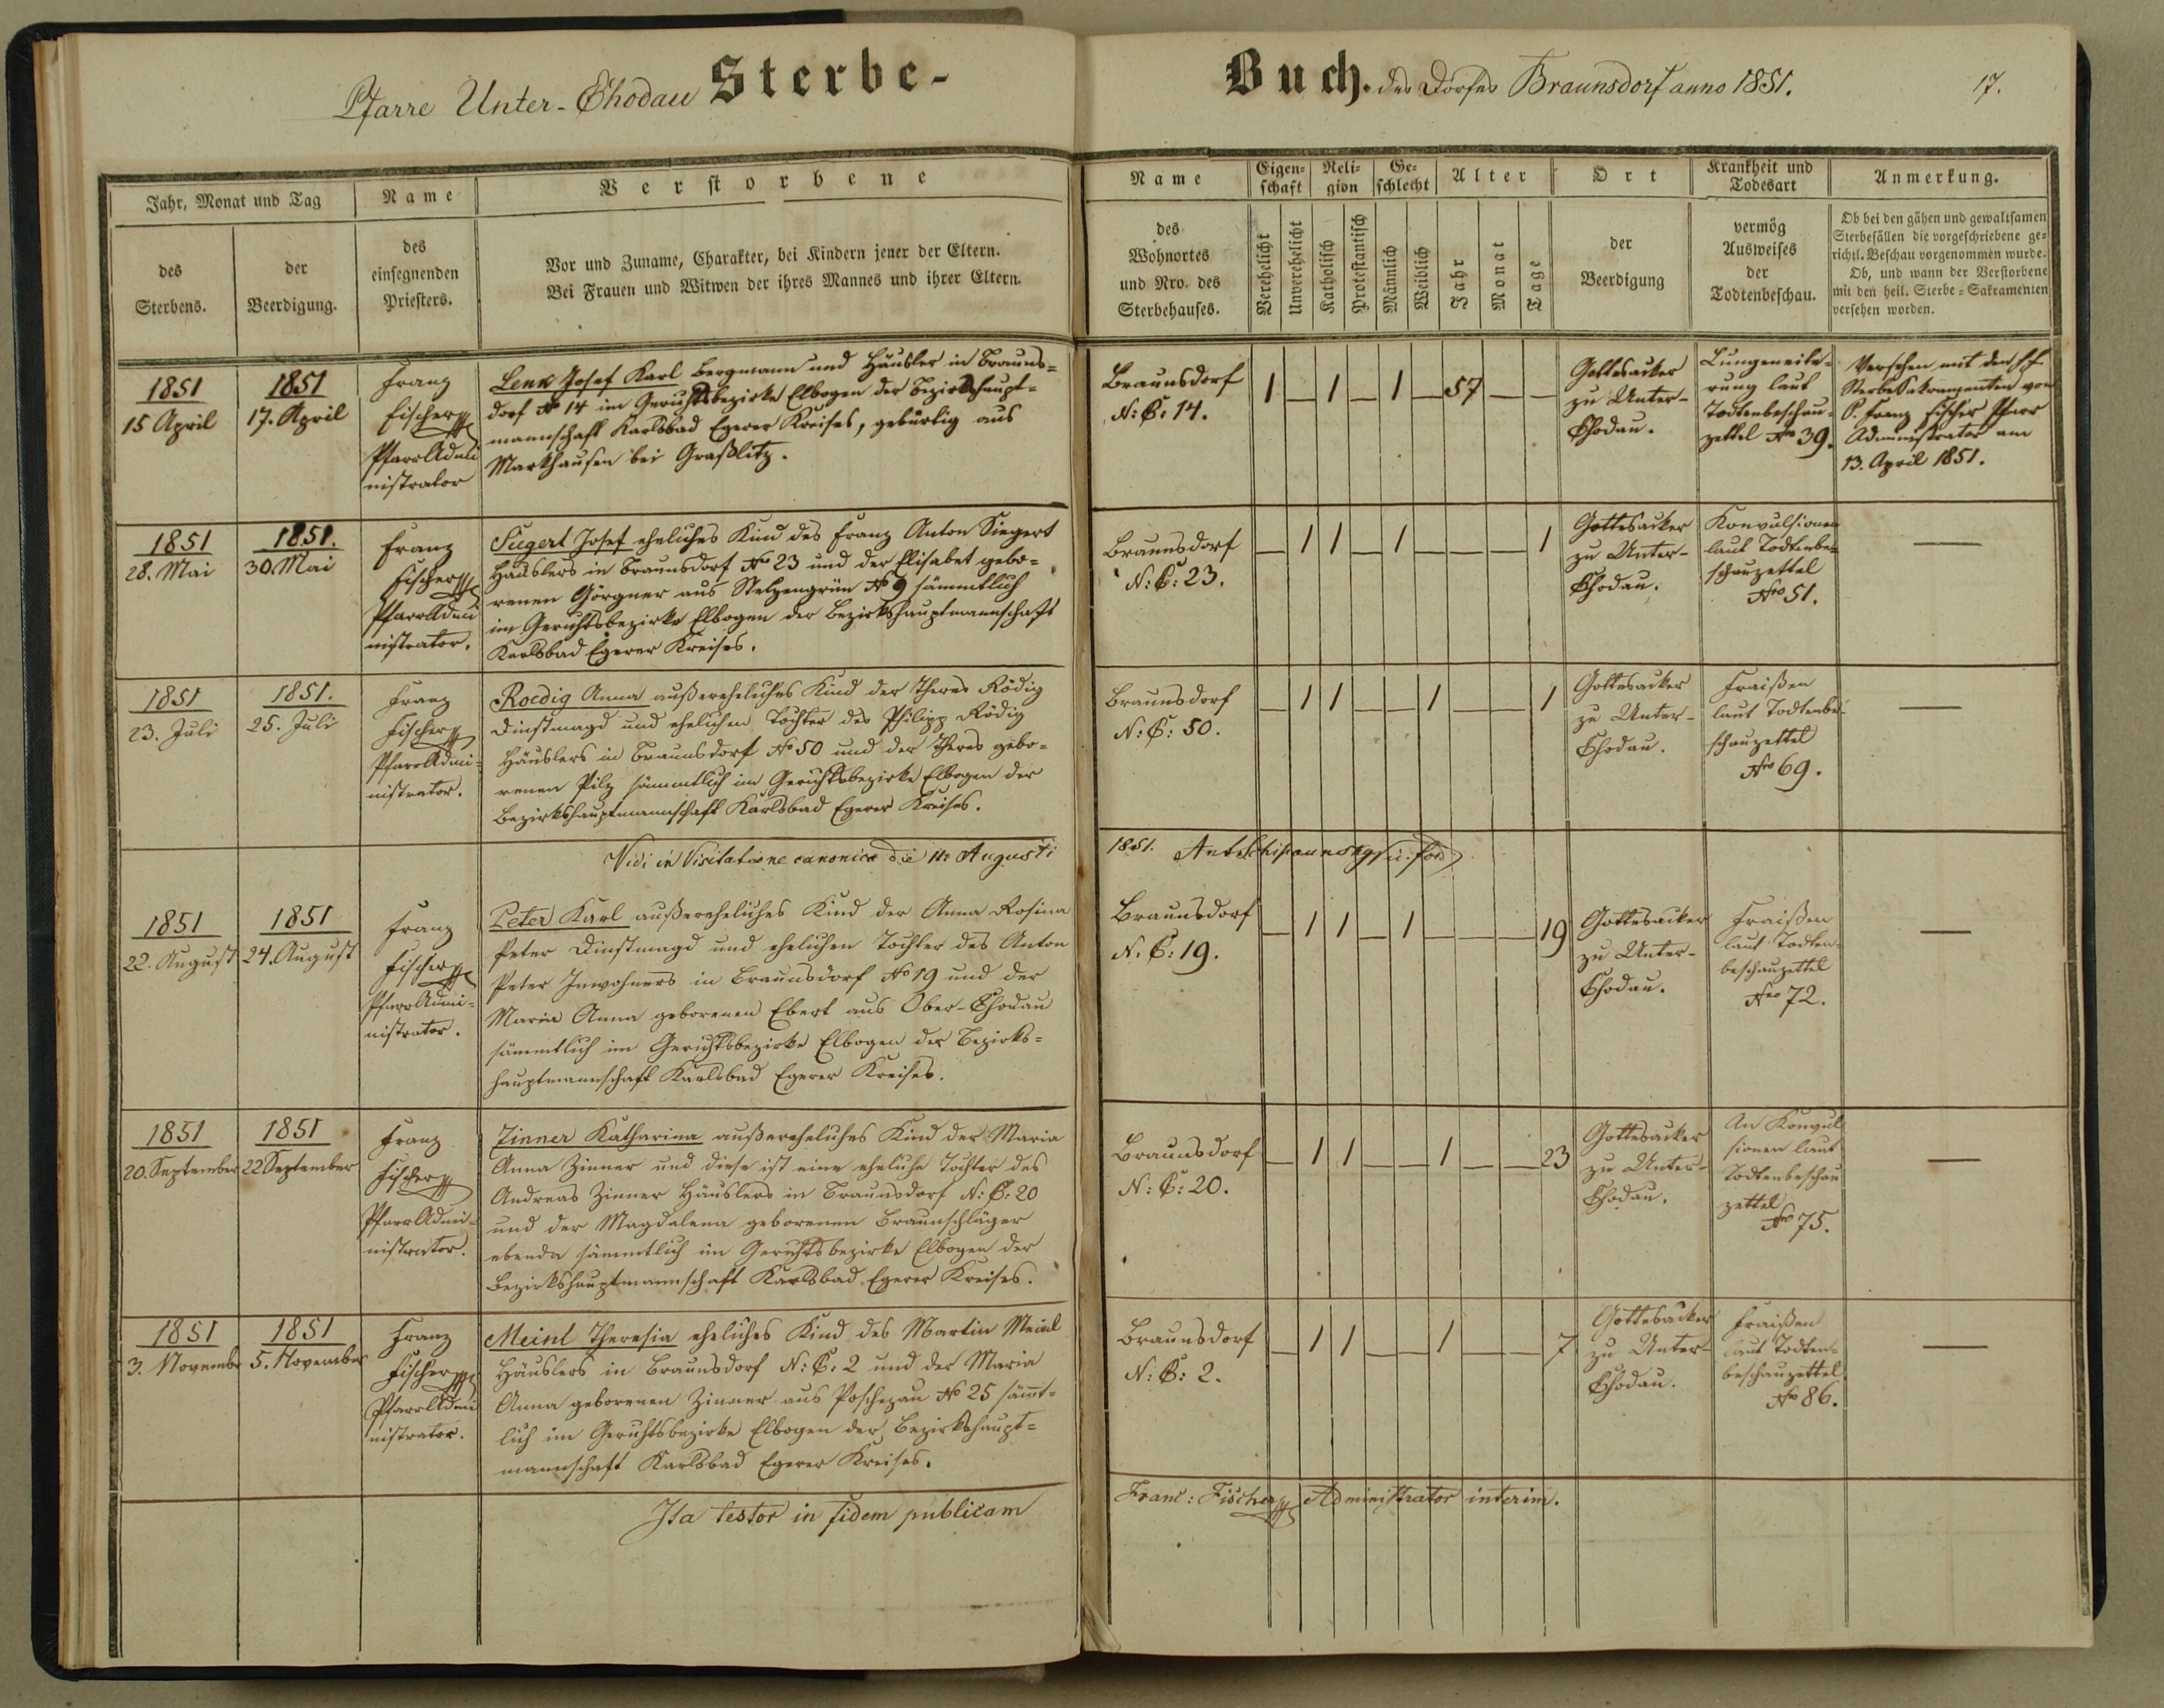 Pfarre Unter-Chodau Sterbe-
Buch. des Dorfes Braunsdorf anno 1851.
17.
Jahr, Monat und Tag
Name
Verstorbene
des
Sterbens.
der
Beerdigung.
des
einsegnenden
Priesters.
Vor und Zuname, Charakter, bei Kindern jener der Eltern.
Bei Frauen und Witwen der ihres Mannes und ihrer Eltern.
Name
Eigen-
schaft
Reli-
gion
Ge-
schlecht
Alter
Ort
Krankheit und
Todesart
Anmerkung.
des
Wohnortes
und Nro. des
Sterbehauses.
Verehelicht
Unverehelicht
Katholisch
Protestantisch
Männlich
Weiblich
Jahr
Monat
Tage
der
Beerdigung
vermög
Ausweises
der
Todtenbeschau.
Ob bei den gähen und gewaltsamen
Sterbefällen die vorgeschriebene ge-
richtl. Beschau vorgenommen wurde.
Ob, und wann der Verstorbene
mit den heil. Sterbe-Sakramenten
versehen worden.
1851
15 April
1851
17. April
Franz
Fischer
PfarrAdmi
nistrator
Lenk Josef Karl Bergmann und Häusler in Brauns-
dorf No 14 im Gerichtsbezirke Elbogen der Bezirkshaupt-
mannschaft Karlsbad Egerer Kreises, gebürtig aus
Markhausen bei Graßlitz.
Braunsdorf
N: C: 14.
1 — 1 — 1 — 57 — —
Gottesacker
zu Unter-
Chodau.
Lungeneite-
rung laut
Todtenbeschau-
zettel No 39.
Versehen mit den hh.
Sterbesakramenten von
P. Franz Fischer Pfarr
Administrator am
13. April 1851.
1851
28. Mai
1851.
30. Mai
Franz
Fischer
PfarrAdmi
nistrator.
Siegert Josef eheliches Kind des Franz Anton Siegert
Häuslers in Braunsdorf No 23 und der Elisabet gebo-
renen Görgner aus Stelzengrün No 9 sämmtlich
im Gerichtsbezirke Elbogen der Bezirkshauptmannschaft
Karlsbad Egerer Kreises.
Braunsdorf
N: C: 23.
— 1 1 — 1 — — — 1
Gottesacker
zu Unter-
Chodau.
Konvulsionen
laut Todtenbe-
schauzettel
Nro 51.
—
1851
23. Juli
1851.
25. Juli
Franz
Fischer
PfarrAdmi-
nistrator.
Roedig Anna außereheliches Kind der Theres Rödig
Dinstmagd und ehelichen Tochter des Philipp Rödig
Häuslers in Braunsdorf No 50 und der Theres gebo-
renen Pilz sämmtlich im Gerichtsbezirke Elbogen der
Bezirkshauptmannschaft Karlsbad Egerer Kreises.
Braunsdorf
N: C: 50.
— 1 1 — — 1 — — 1
Gottesacker
zu Unter-
Chodau.
Fraißen
laut Todtenbe-
schauzettel
Nro 69.
—
Vidi in Visitatione canonica die 11: Augusti
1851.
1851
22. August
1851
24. August
Franz
Fischer
PfarrAdmi-
nistrator.
Peter Karl außereheliches Kind der Anna Rosina
Peter Dinstmagd und ehelichen Tochter des Anton
Peter Inwohners in Braunsdorf No 19 und der
Maria Anna geborenen Ebert aus Ober-Chodau
sämmtlich im Gerichtsbezirke Elbogen der Bezirks-
hauptmannschaft Karlsbad Egerer Kreises.
Braunsdorf
N. C: 19.
— 1 1 — 1 — — — 19
Gottesacker
zu Unter-
Chodau.
Fraißen
laut Todten-
beschauzettel
Nro 72.
—
1851
20. September
1851
22 September
Franz
Fischer
PfarrAdmi-
nistrator.
Zinner Katharina außereheliches Kind der Maria
Anna Zinner und diese ist eine eheliche Tochter des
Andreas Zinner Häuslers in Braunsdorf N: C. 20
und der Magdalena geborenen Braunschläger
ebenda sämmtlich im Gerichtsbezirke Elbogen der
Bezirkshauptmannschaft Karlsbad Egerer Kreises.
Braunsdorf
N: C: 20.
— 1 1 — — 1 — — 23
Gottesacker
zu Unter-
Chodau.
An Konvul
sionen laut
Todtenbeschau
zettel
No 75.
—
1851
3. November
1851
5. November
Franz
Fischer
PfarrAdmi
nistrator.
Meinl Theresia eheliches Kind des Martin Meinl
Häuslers in Braunsdorf N: C: 2 und der Maria
Anna geborenen Zinner aus Poschezau No 25 sämt-
lich im Gerichtsbezirke Elbogen der Bezirkshaupt-
mannschaft Karlsbad Egerer Kreises.
Braunsdorf
N: C: 2.
— 1 1 — — 1 — — 7
Gottesacker
zu Unter-
Chodau.
Fraißen
laut Todten-
beschauzettel
No 86.
—
Ita testor in fidem publicam
Franc: Fischer Administrator interim.